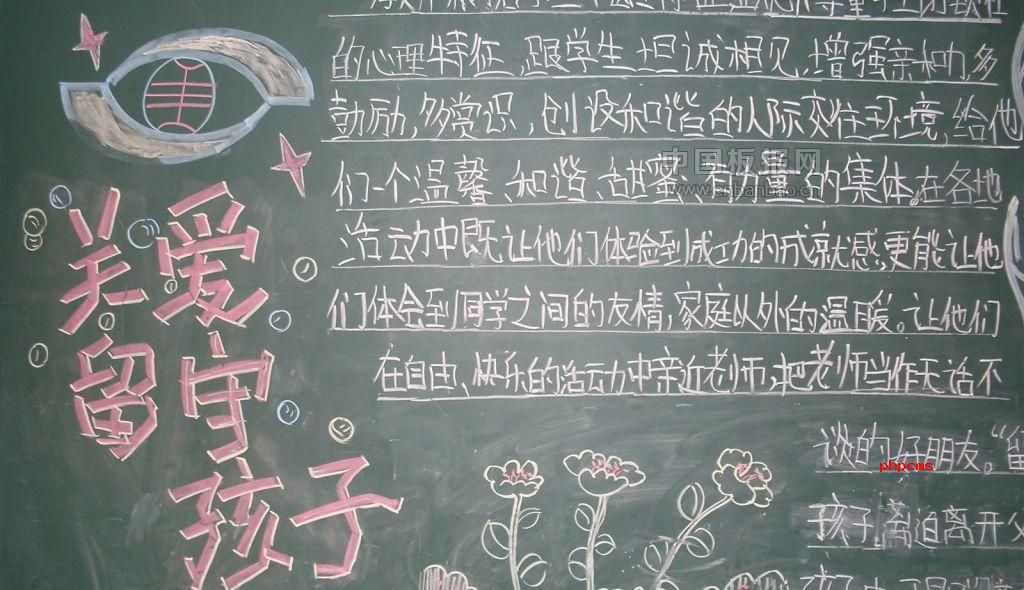 关爱
留守
孩子
的心理特征,跟学生坦诚相见,增强亲和力,多
鼓励,多赏识,创设和谐的人际交往环境,给他
们一个温馨、和谐、甜蜜、有力量的集体。在各地
活动中既让他们体验到成功的成就感,更能让他
们体会到同学之间的友情,家庭以外的温暖。让他们
在自由、快乐的活动中亲近老师,把老师当作无话不
谈的好朋友。“留
孩子离迫离开父
中国板报网
www.cnbanbao.cn
phpcms